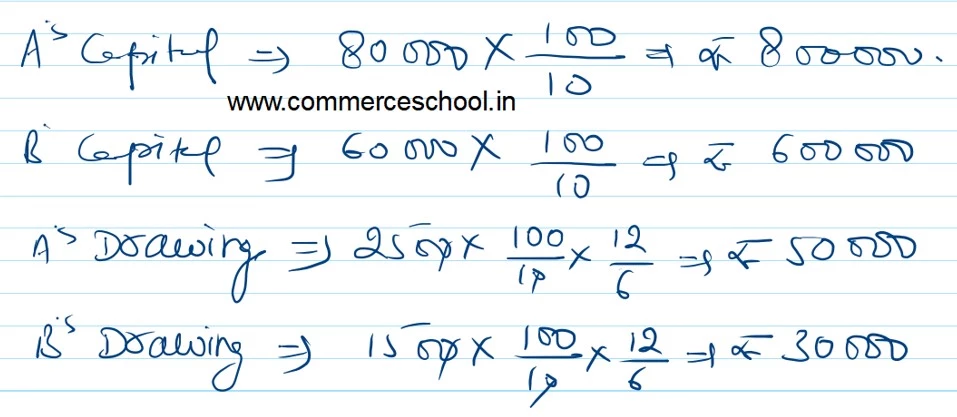 A's Capital ⇒ 80000 × 100/10 ⇒ ₹ 800000.
www.commerceschool.in
B Capital ⇒ 60000 × 100/10 ⇒ ₹ 600000
A's Drawing ⇒ 2500 × 100/10 × 12/6 ⇒ ₹ 50000
B's Drawing ⇒ 1500 × 100/10 × 12/6 ⇒ ₹ 30000